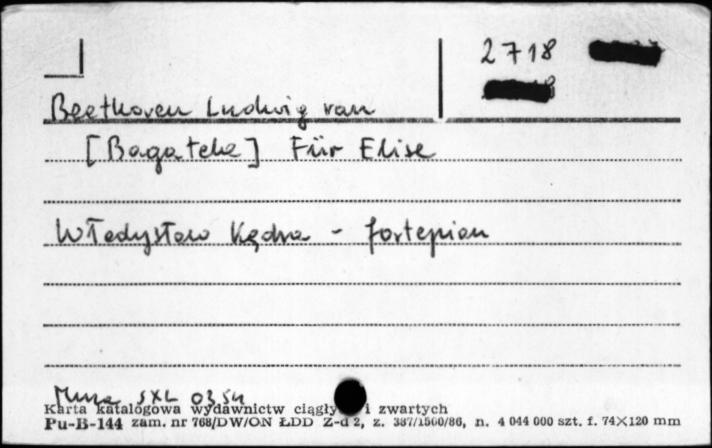 2718
Beethoven Ludwig van
[Bagatela] Für Elise
Władysław Kędra - fortepian
Muza SXL 0354
Karta katalogowa wydawnictw ciągły i zwartych
Pu-B-144 zam. nr 768/DW/ON ŁDD Z-d 2, z. 387/1500/86, n. 4 044 000 szt. f. 74×120 mm